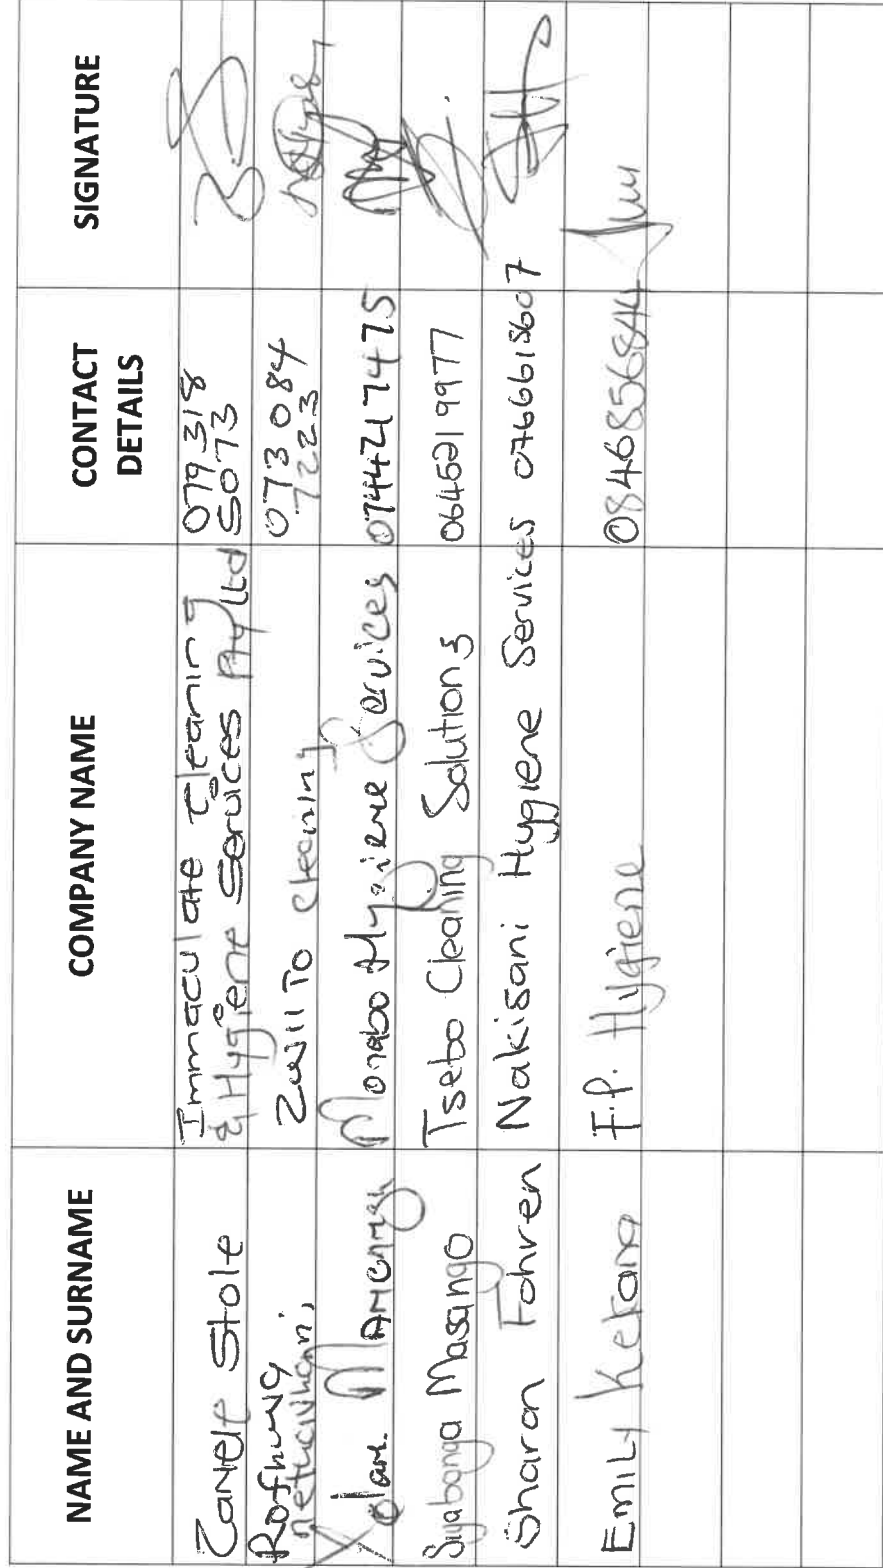 NAME AND SURNAME COMPANY NAME CONTACT DETAILS SIGNATURE
Zanele Stole Immaculate Cleaning 079 318
& Hygiene Services Pty Ltd 5073
Rofhiwa Zwill To cleaning 073 084
7223
Xolani Hygiene Services 0744217475
Siyabonga Masango Tsebo Cleaning Solutions 0645219977
Sharon Fohren Nakisani Hygiene Services 0766615607
EMILY Kekana F.P. Hygiene 0846856844